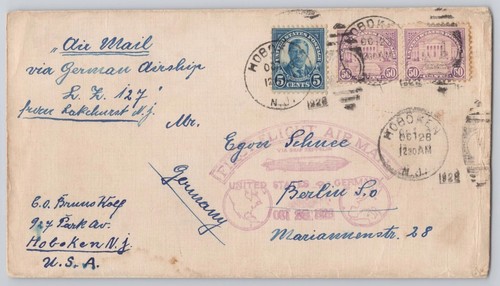 "Air Mail"
via German Airship
L. Z. 127
from Lakehurst N.J.
UNITED STATES POSTAGE
5 CENTS 5
50 50
50 50
HOBOKEN
OC 28
12 30 AM
N.J.
1928
HOBOKEN
OCT 28
12 30 AM
N.J.
1928
Mr.
Egon Schnee
Berlin S.O
Mariannenstr. 28
Germany
FIRST FLIGHT AIR MAIL
UNITED STATES GERMANY
OCT 28 1928
C.O. Bruno Kolf
927 Park Av.
Hoboken N.J.
U.S.A.